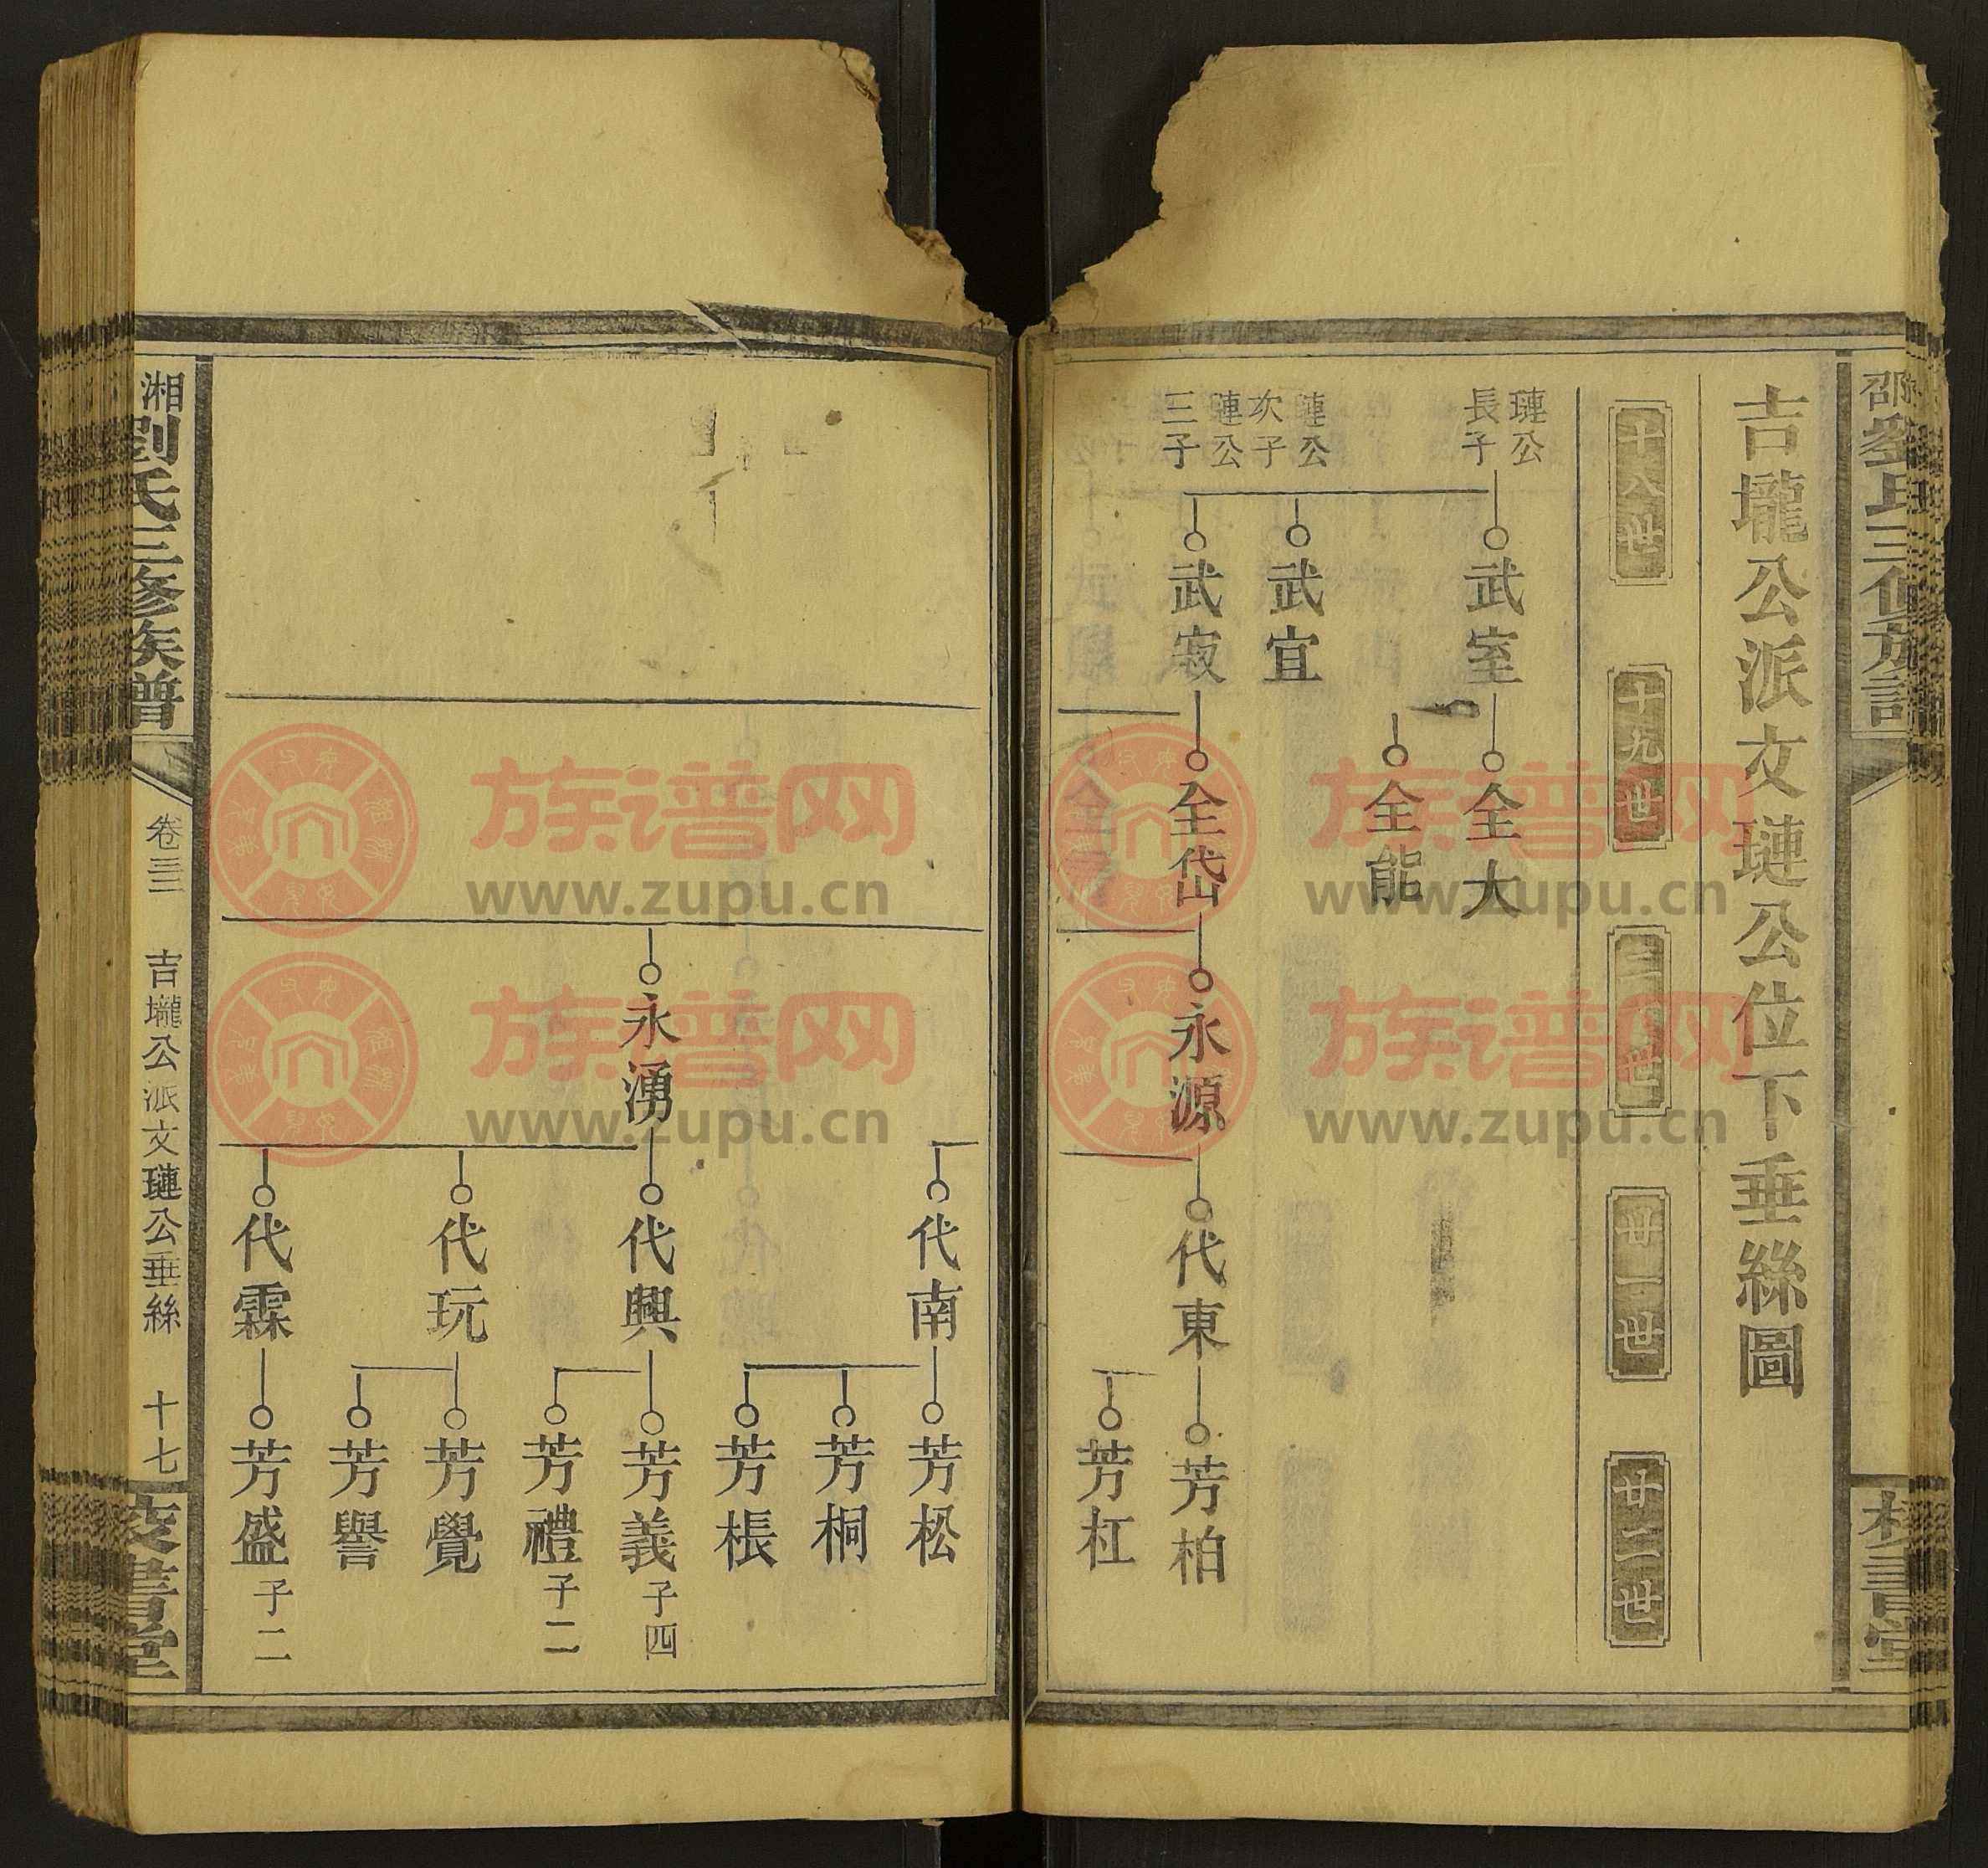 吉壠公派文璉公位下垂絲圖
十八世
十九世
二十世
廿一世
廿二世
璉公
長子
武室
全大
全能
璉公
次子
武宜
璉公
三子
武宬
全岱
永源
代東
芳柏
芳杠
代南
芳松
芳桐
芳棖
永湧
代興
芳義 子四
芳禮 子二
代玩
芳覺
芳譽
代霖
芳盛 子二
湘
劉氏三修族譜
卷三三
吉壠公派文璉公垂絲
十七
族谱网
www.zupu.cn
族谱网
www.zupu.cn
族谱网
www.zupu.cn
族谱网
www.zupu.cn